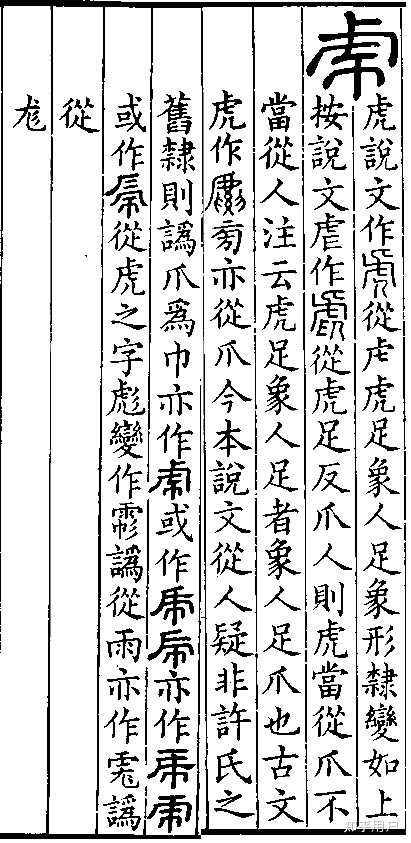 虎說文作從虍虎足象人足象形隸變如上
按說文虐作從虎足反爪人則虎當從爪不
當從人注云虎足象人足者象人足爪也古文
虎作亦從爪今本說文從人疑非許氏之
舊隸則譌爪爲巾亦作或作亦作
或作從虎之字彪變作譌從雨亦作譌
從
尨
知乎用户